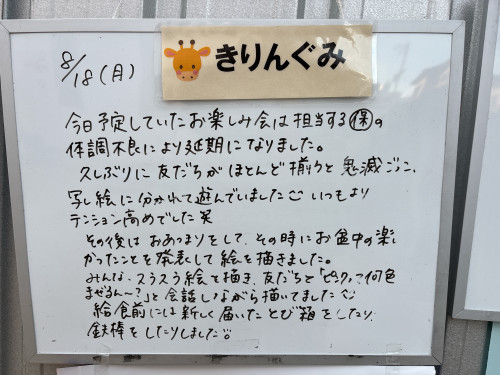 きりんぐみ
8/18(月)
今日予定していたお楽しみ会は担当する㋭の
体調不良により延期になりました。
久しぶりに友だちがほとんど揃うと鬼滅ごっこ、
写し絵に分かれて遊んでいました いつもより
テンション高めでした 笑
その後はおあつまりをして、その時にお盆中の楽し
かったことを発表して絵を描きました。
みんな、スラスラ絵を描き、友だちと「ピンクって何色
まぜるん〜?」と会話しながら描いてました
給食前には新しく届いたとび箱をしたり、
鉄棒をしたりしました。